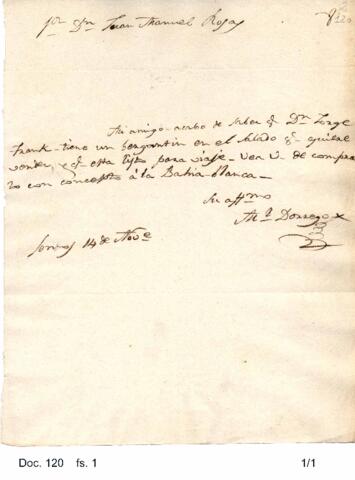 Sor Dn Juan Manuel Rosas
120
Mi amigo - acabo de saber q. Dn Jorge
Frank - tiene un bergantin en el Salado q. quiere
vender, y q. esta listo para viaje - vea V. de compra
lo con concepto á la Bahia-blanca -
Su affmo
Ml Dorrego
14 de Nove
Doc. 120 fs. 1 1/1